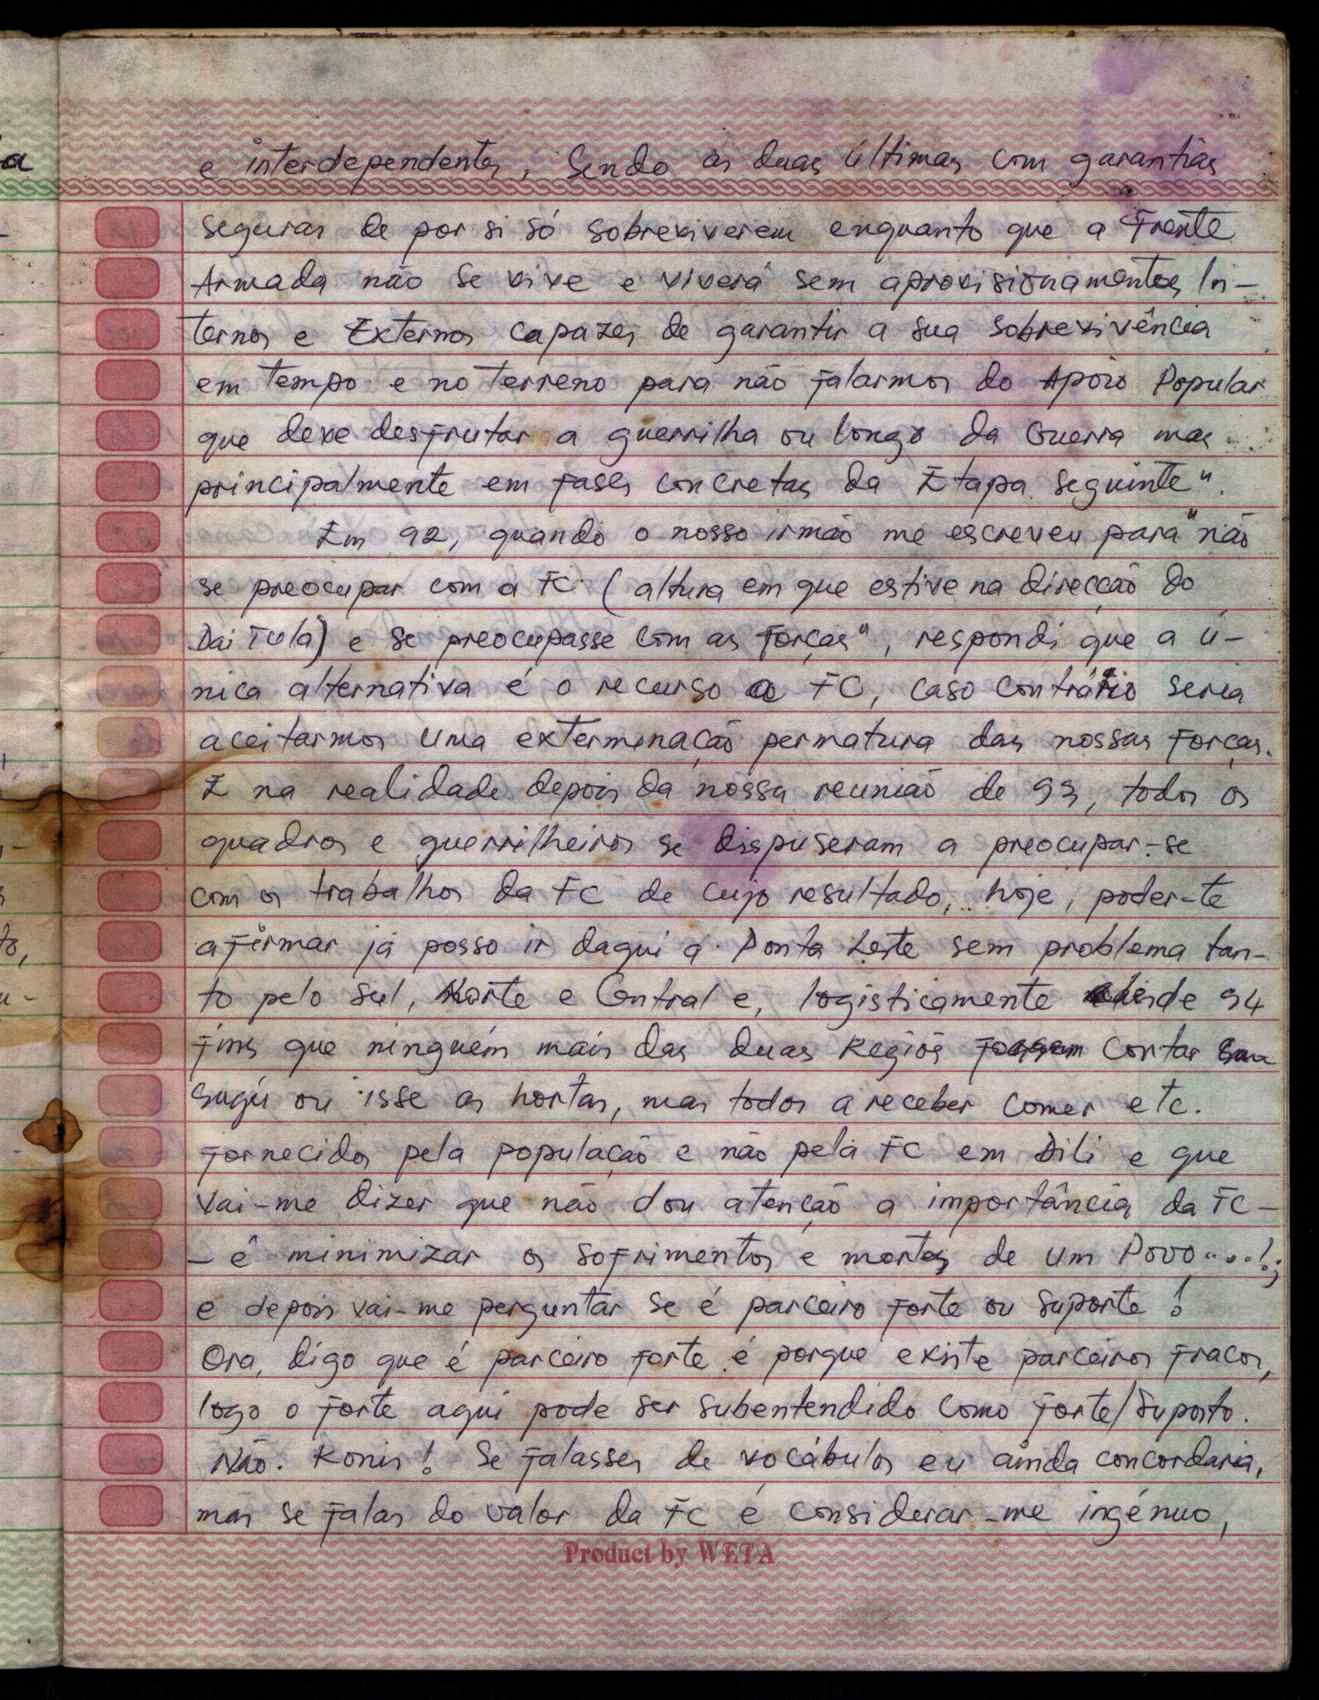 e interdependentes, Sendo as duas últimas com garantias
seguras de por si só sobreviverem enquanto que a Frente
Armada não se vive e viverá sem aprovisionamentos In-
ternos e Externos capazes de garantir a sua sobrevivência
em tempo e no terreno para não falarmos do Apoio Popular
que deve desfrutar a guerrilha ou longo da Guerra mas
principalmente em fases concretas da Etapa seguinte".
Em 92, quando o nosso irmão me escreveu para "não
se preocupar com a FC (altura em que estive na direcção do
Dai Tula) e se preocupasse com as forças", respondi que a ú-
nica alternativa é o recurso a FC, caso contrário seria
aceitarmos uma exterminação permatura das nossas forças.
E na realidade depois da nossa reunião de 93, todos os
quadros e guerrilheiros se dispuseram a preocupar-se
com os trabalhos da FC de cujo resultado, hoje, poder-te
afirmar já posso ir daqui a Ponta Leste sem problema tan-
to pelo Sul, Norte e Central e, logisticamente desde 94
fins que ninguém mais das duas Regiõs fossem cortar
sugú ou isse as hortas, mas todos a receber comer etc.
fornecidos pela população e não pela FC em Dili e que
vai-me dizer que não dou atenção a importância da FC -
- é minimizar os sofrimentos e mortes de um Povo....!;
e depois vai-me perguntar se é parceiro forte ou suporte!
Ora, digo que é parceiro forte é porque existe parceiros fracos,
logo o forte aqui pode ser subentendido como forte/Suporto.
Não. Konis! Se falasses de vocábulos eu ainda concordaria,
mas se falas do valor da FC é considerar-me ingénuo,
Product by WETA